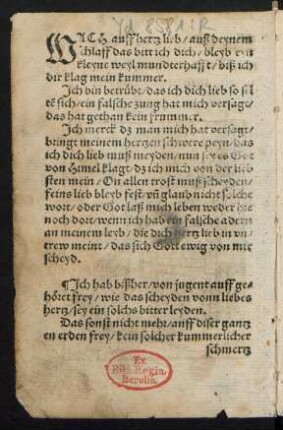 WAch auff hertz lieb / auß deynem
schlaff das bitt ich dich / bleyb eyn
kleyne weyl munder hafft / biß ich
dir klag mein kummer.
Jch bin betrübt / das ich dich lieb so sel
tē sich / ein falsche zung hat mich versagt /
das hat gethan kein frummer.
Jch merck dz man mich hat versagt /
bringt meinem hertzen schwere peyn / das
ich dich lieb muß meyden / nun sey es Got
von himel klagt / dz ich mich von der lieb
sten mein / On allen trost muß scheyden /
feins lieb bleyb fest / vñ glaub nicht solche
wort / oder Got laß mich leben weder hie
noch dort / wenn ich hab ein falsche adern
an meinem leyb / die dich hertz lieb in vn-
trew meint / das sich Gott ewig von mir
scheyd.
¶Jch hab bißher / von jugent auff ge-
höret frey / wie das scheyden vonn liebes
hertz / sey ein solchs bitter leyden.
Das sonst nicht mehr / auff diser gantz
en erden frey / kein solcher kummerlicher
schmertz
Ex
Bibl. Regia
Berolin.